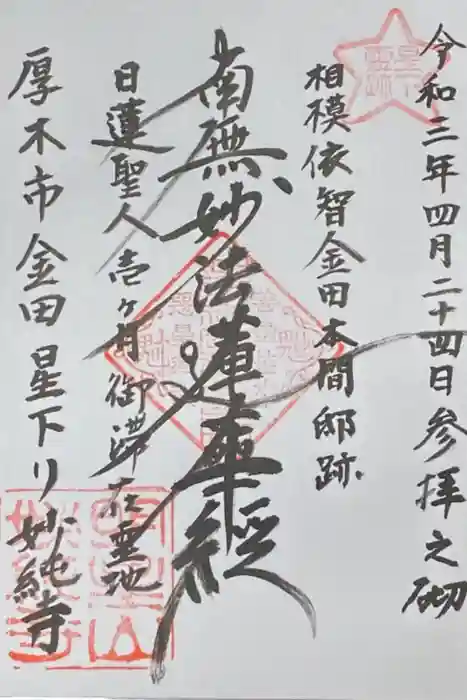 令和三年四月二十四日参拝之砌
相模依智金田本間邸跡
南無妙法蓮華経
日蓮聖人壱ヶ月御滞在霊地
厚木市金田星下り妙純寺
星下
霊跡